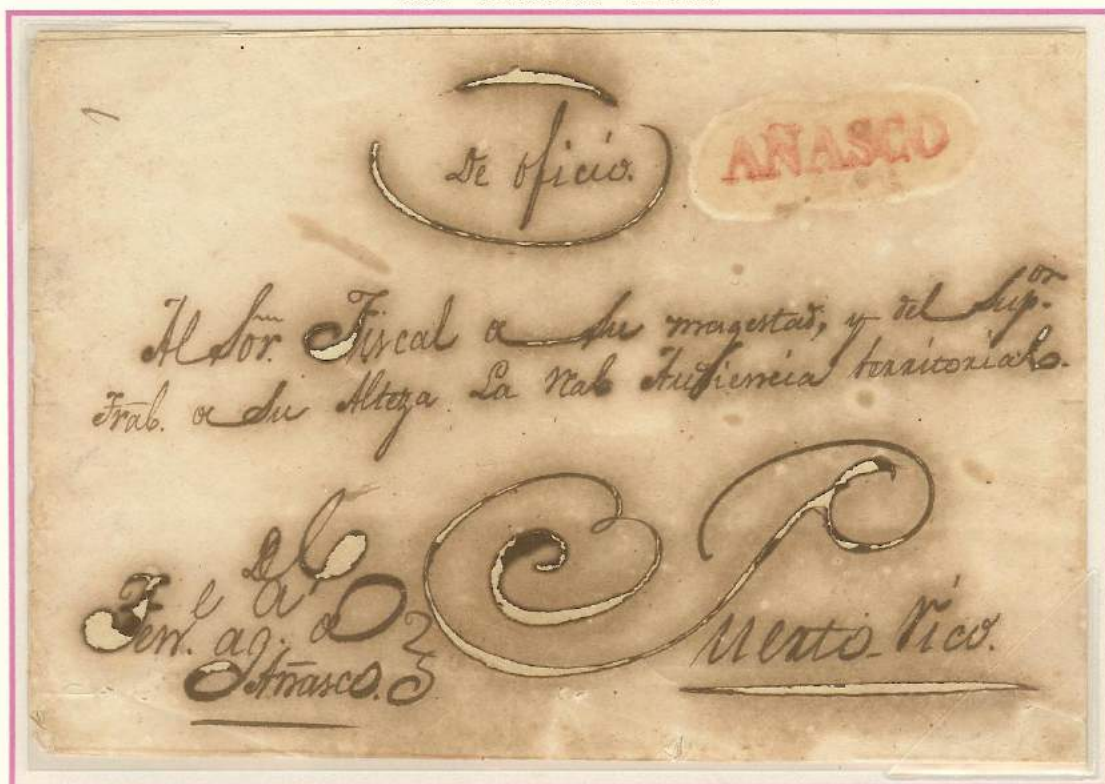 De oficio.
AÑASCO
Al Sor. Fiscal a su magestad, y del Supor.
Trab. a su Alteza La Rab Audiencia territorial.
Del
Añasco.
Puerto Rico.